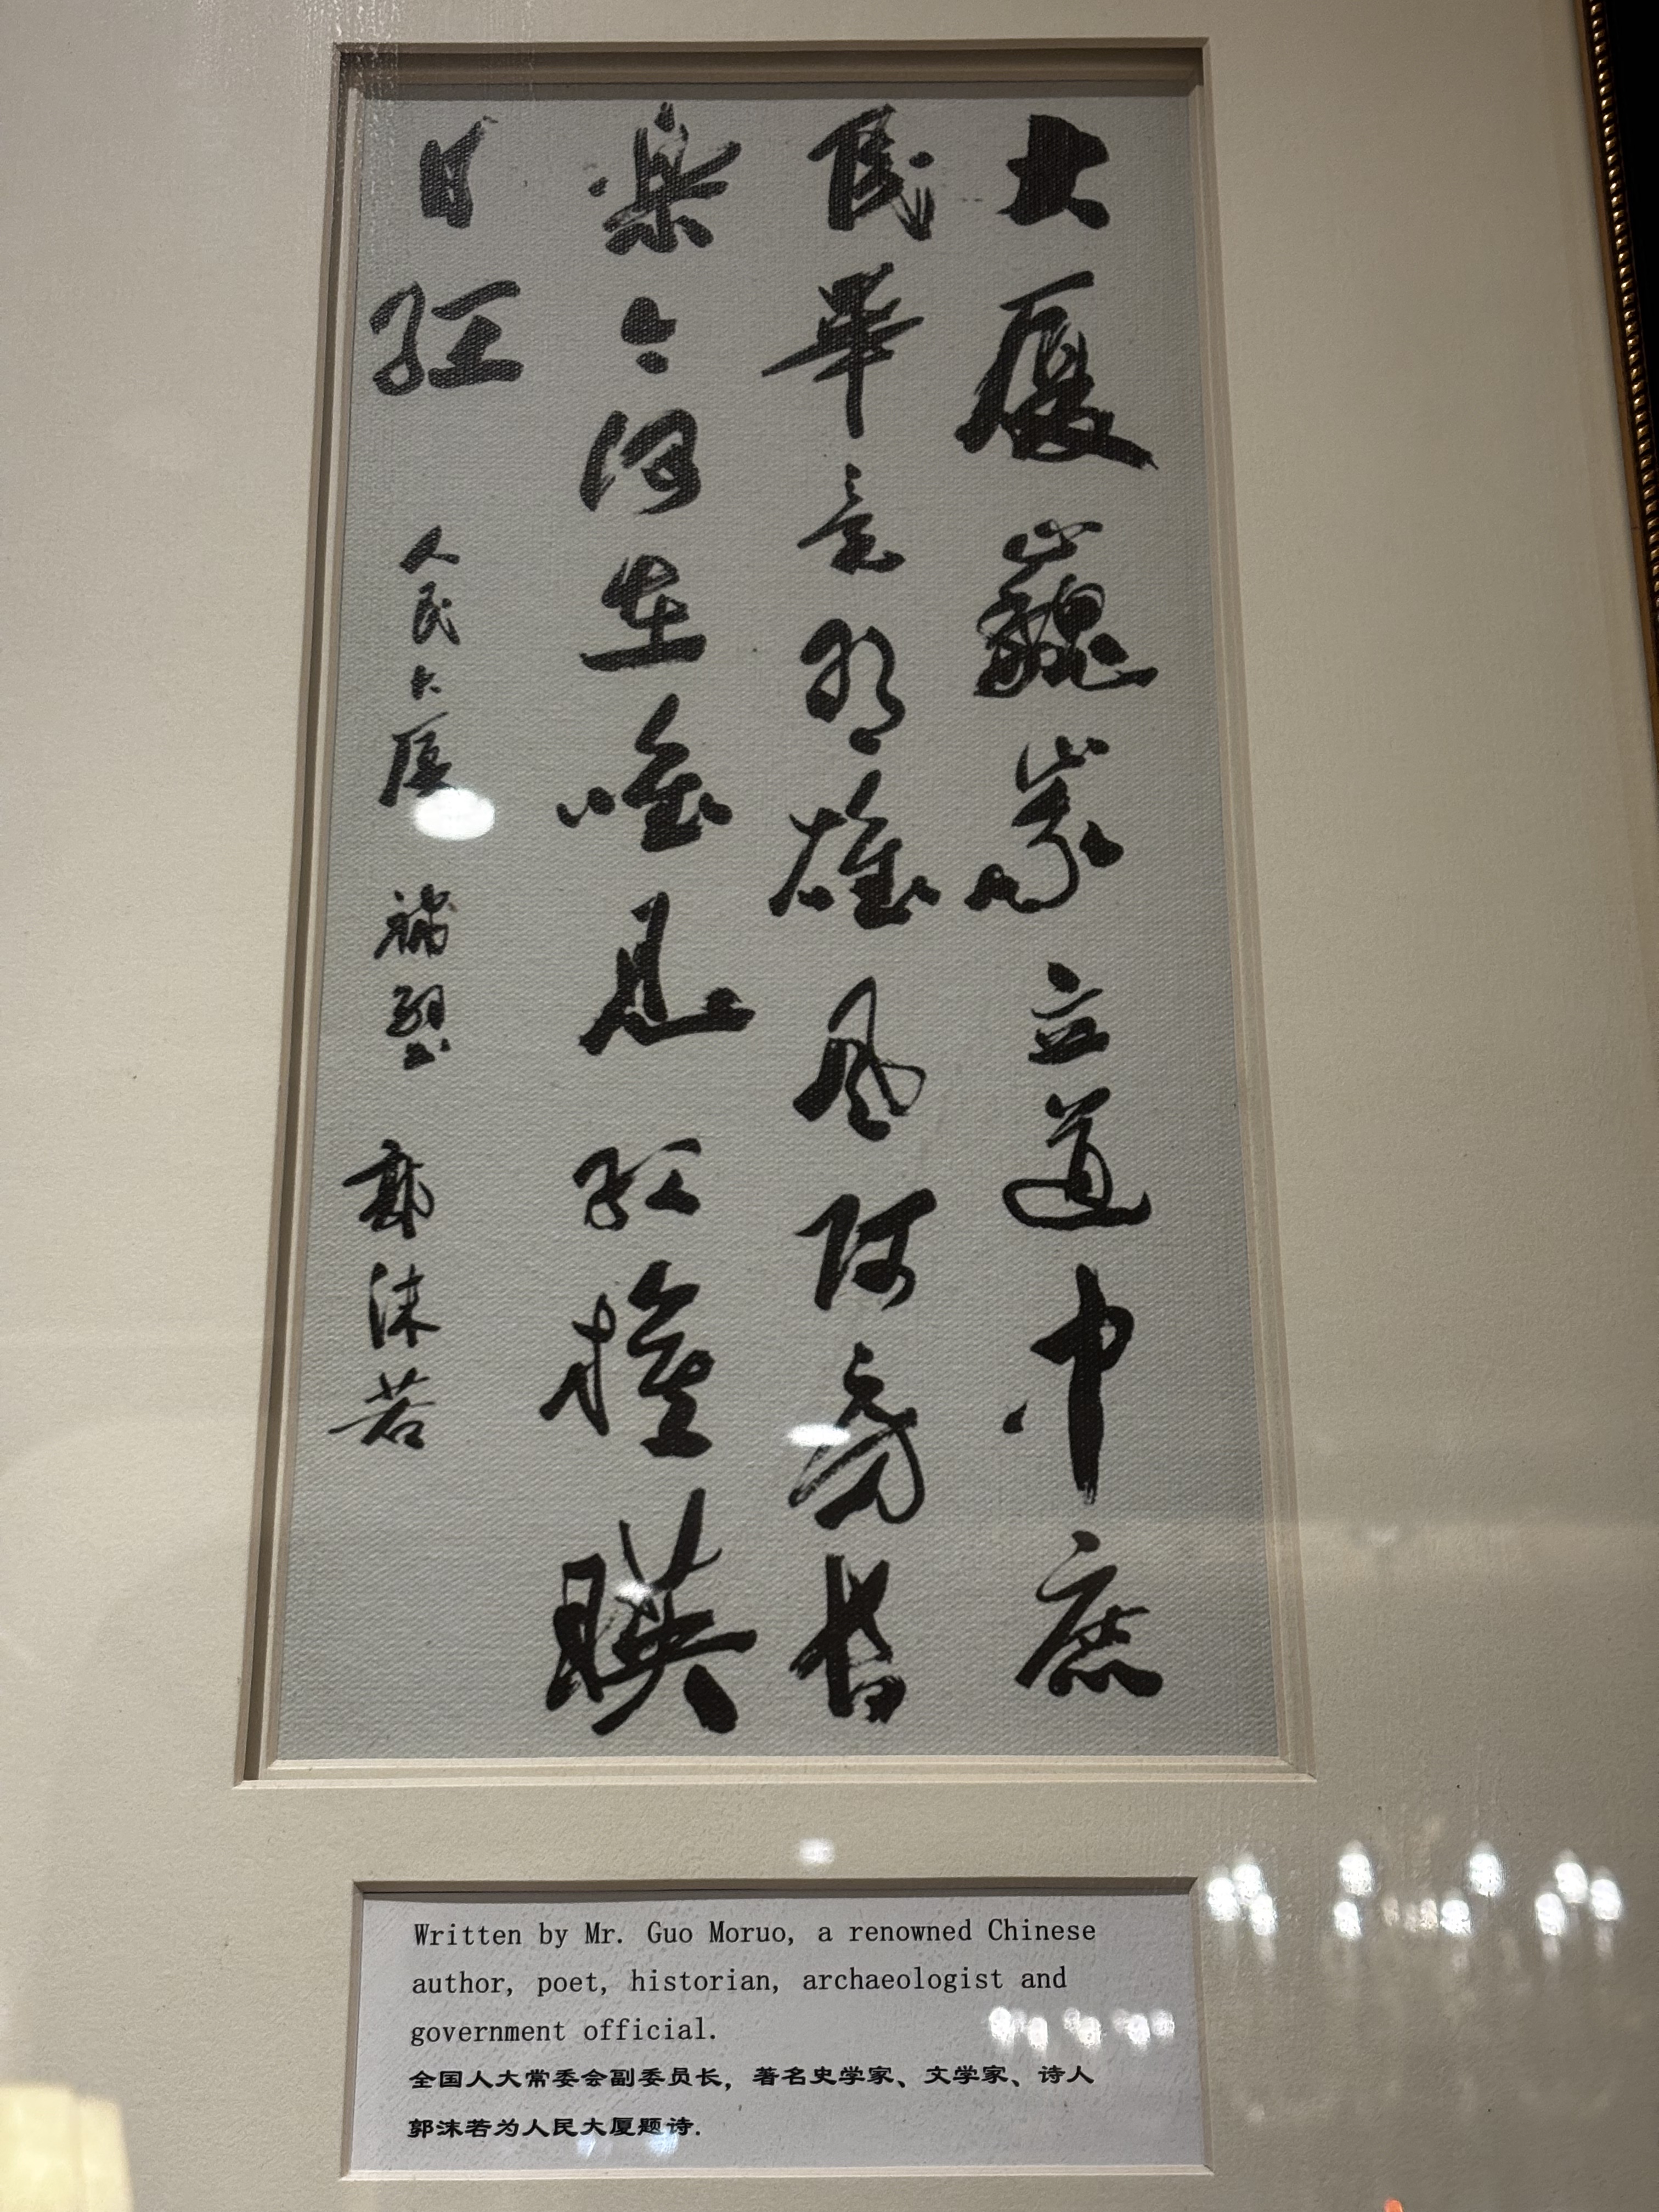 大厦巍峩立道中庶
民畢竟雄风阿房長
楽今何在唯見红權暎
日红
人民大厦 補壁 郭沫若
Written by Mr. Guo Moruo, a renowned Chinese
author, poet, historian, archaeologist and
government official.
全国人大常委会副委员长，著名史学家、文学家、诗人
郭沫若为人民大厦题诗.